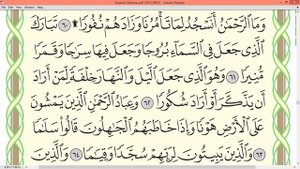 وَمَا ٱلرَّحْمَٰنُ أَنَسْجُدُ لِمَا تَأْمُرُنَا وَزَادَهُمْ نُفُورًا ۩ ٦٠ تَبَارَكَ
ٱلَّذِى جَعَلَ فِى ٱلسَّمَآءِ بُرُوجًا وَجَعَلَ فِيهَا سِرَٰجًا وَقَمَرًا
مُّنِيرًا ٦١ وَهُوَ ٱلَّذِى جَعَلَ ٱلَّيْلَ وَٱلنَّهَارَ خِلْفَةً لِّمَنْ أَرَادَ
أَن يَذَّكَّرَ أَوْ أَرَادَ شُكُورًا ٦٢ وَعِبَادُ ٱلرَّحْمَٰنِ ٱلَّذِينَ يَمْشُونَ
عَلَى ٱلْأَرْضِ هَوْنًا وَإِذَا خَاطَبَهُمُ ٱلْجَٰهِلُونَ قَالُوا۟ سَلَٰمًا
٦٣ وَٱلَّذِينَ يَبِيتُونَ لِرَبِّهِمْ سُجَّدًا وَقِيَٰمًا ٦٤ وَٱلَّذِينَ